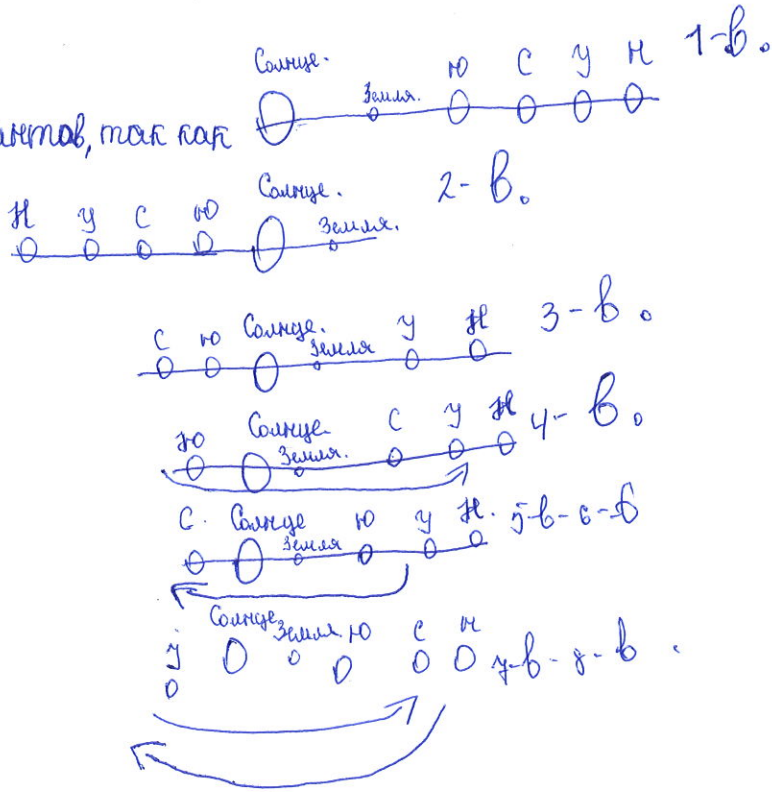 Солнце. Земля. Ю С У Н 1-в.
антов, так как
Н У С Ю Солнце. Земля. 2-в.
С Ю Солнце. Земля У Н 3-в.
Ю Солнце. Земля. С У Н 4-в.
С. Солнце Земля Ю У Н. 5-в-6-в
У Солнце. Земля Ю С Н 7-в-8-в.